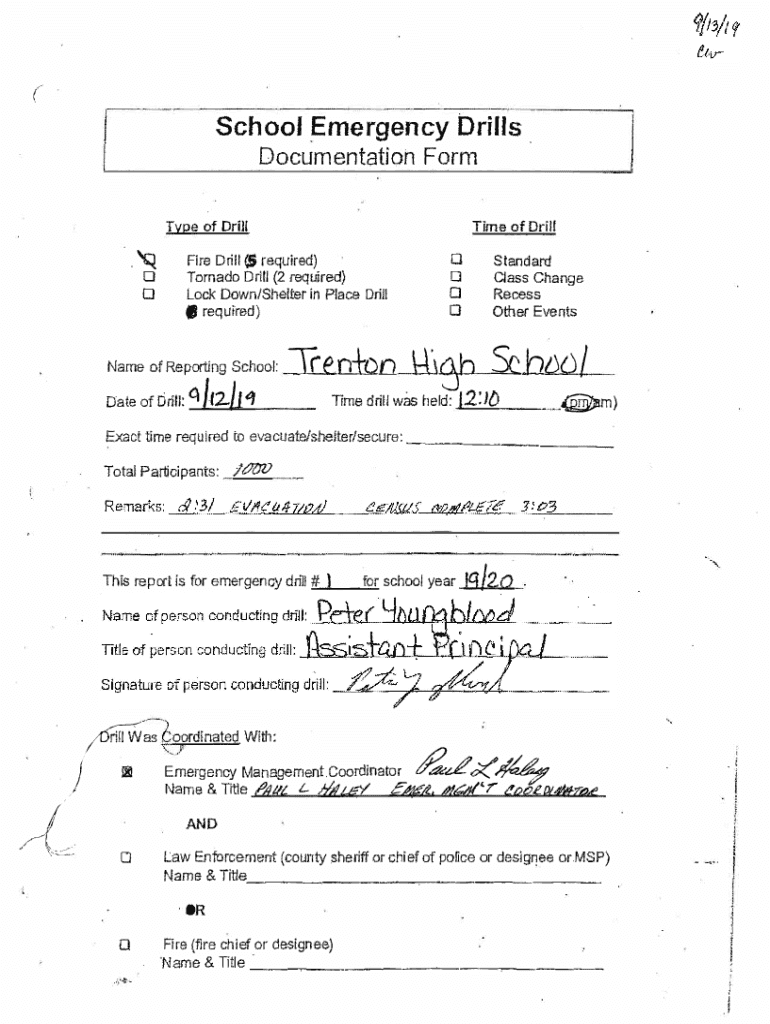 9/13/19
CW
School Emergency Drills
Documentation Form
Type of Drill
Time of Drill
Fire Drill (5 required)
Standard
Tornado Drill (2 required)
Class Change
Lock Down/Shelter in Place Drill
Recess
required)
Other Events
Name of Reporting School: Trenton High School
Date of Drill: 9/12/19 Time drill was held: 12:10 (pm/am)
Exact time required to evacuate/shelter/secure:
Total Participants: 1000
Remarks: 2:31 EVACUATION CENSUS COMPLETE 3:03
This report is for emergency drill # 1 for school year 19/20 .
Name of person conducting drill: Peter Youngblood
Title of person conducting drill: Assistant Principal
Signature of person conducting drill:
Drill Was Coordinated With:
Emergency Management Coordinator Paul L Haley
Name & Title PAUL L HALEY EMER. MGM'T COORDINATOR
AND
Law Enforcement (county sheriff or chief of police or designee or MSP)
Name & Title
OR
Fire (fire chief or designee)
Name & Title